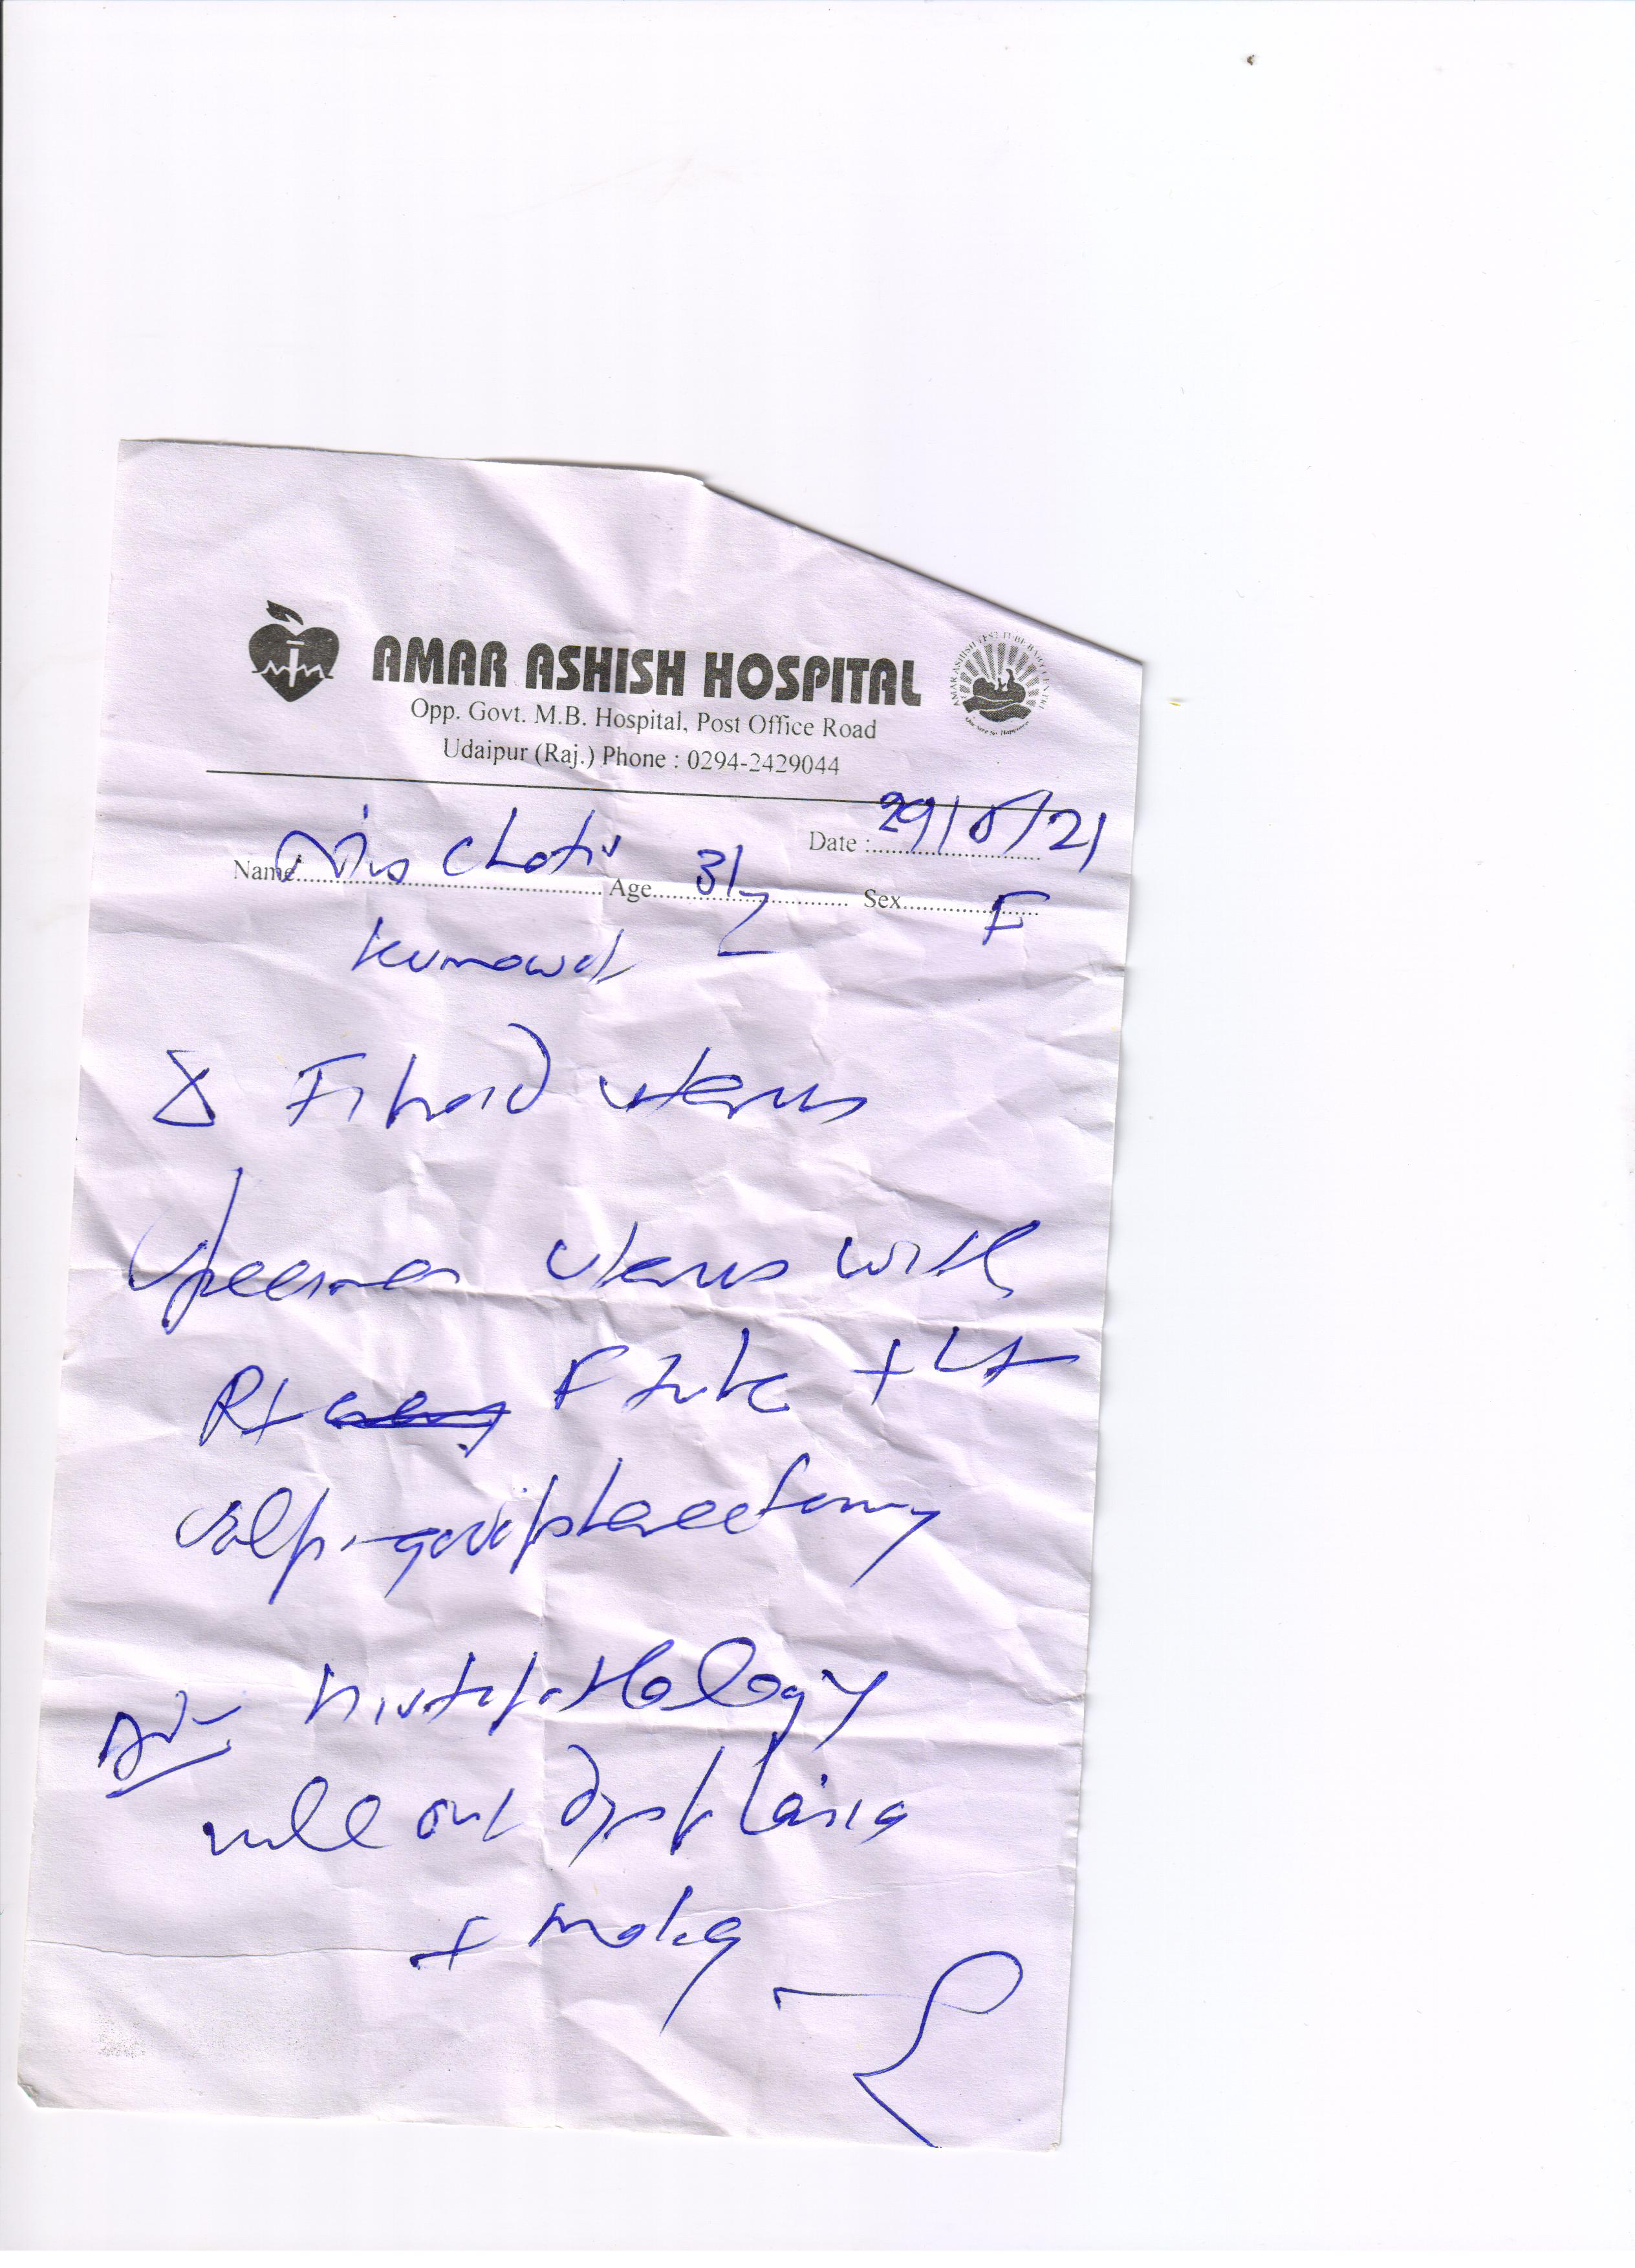 AMAR ASHISH HOSPITAL
AMAR ASHISH TEST TUBE BABY CENTRE
Opp. Govt. M.B. Hospital, Post Office Road
Udaipur (Raj.) Phone : 0294-2429044
Date : 29/8/21
Name Mrs Choti Age 31y Sex F
Kumawat
Δ Fibroid uterus
Specimen uterus with
Rt F tube + Lt
salpingoophorectomy
Adv histopathology
rule out dysplasia
+